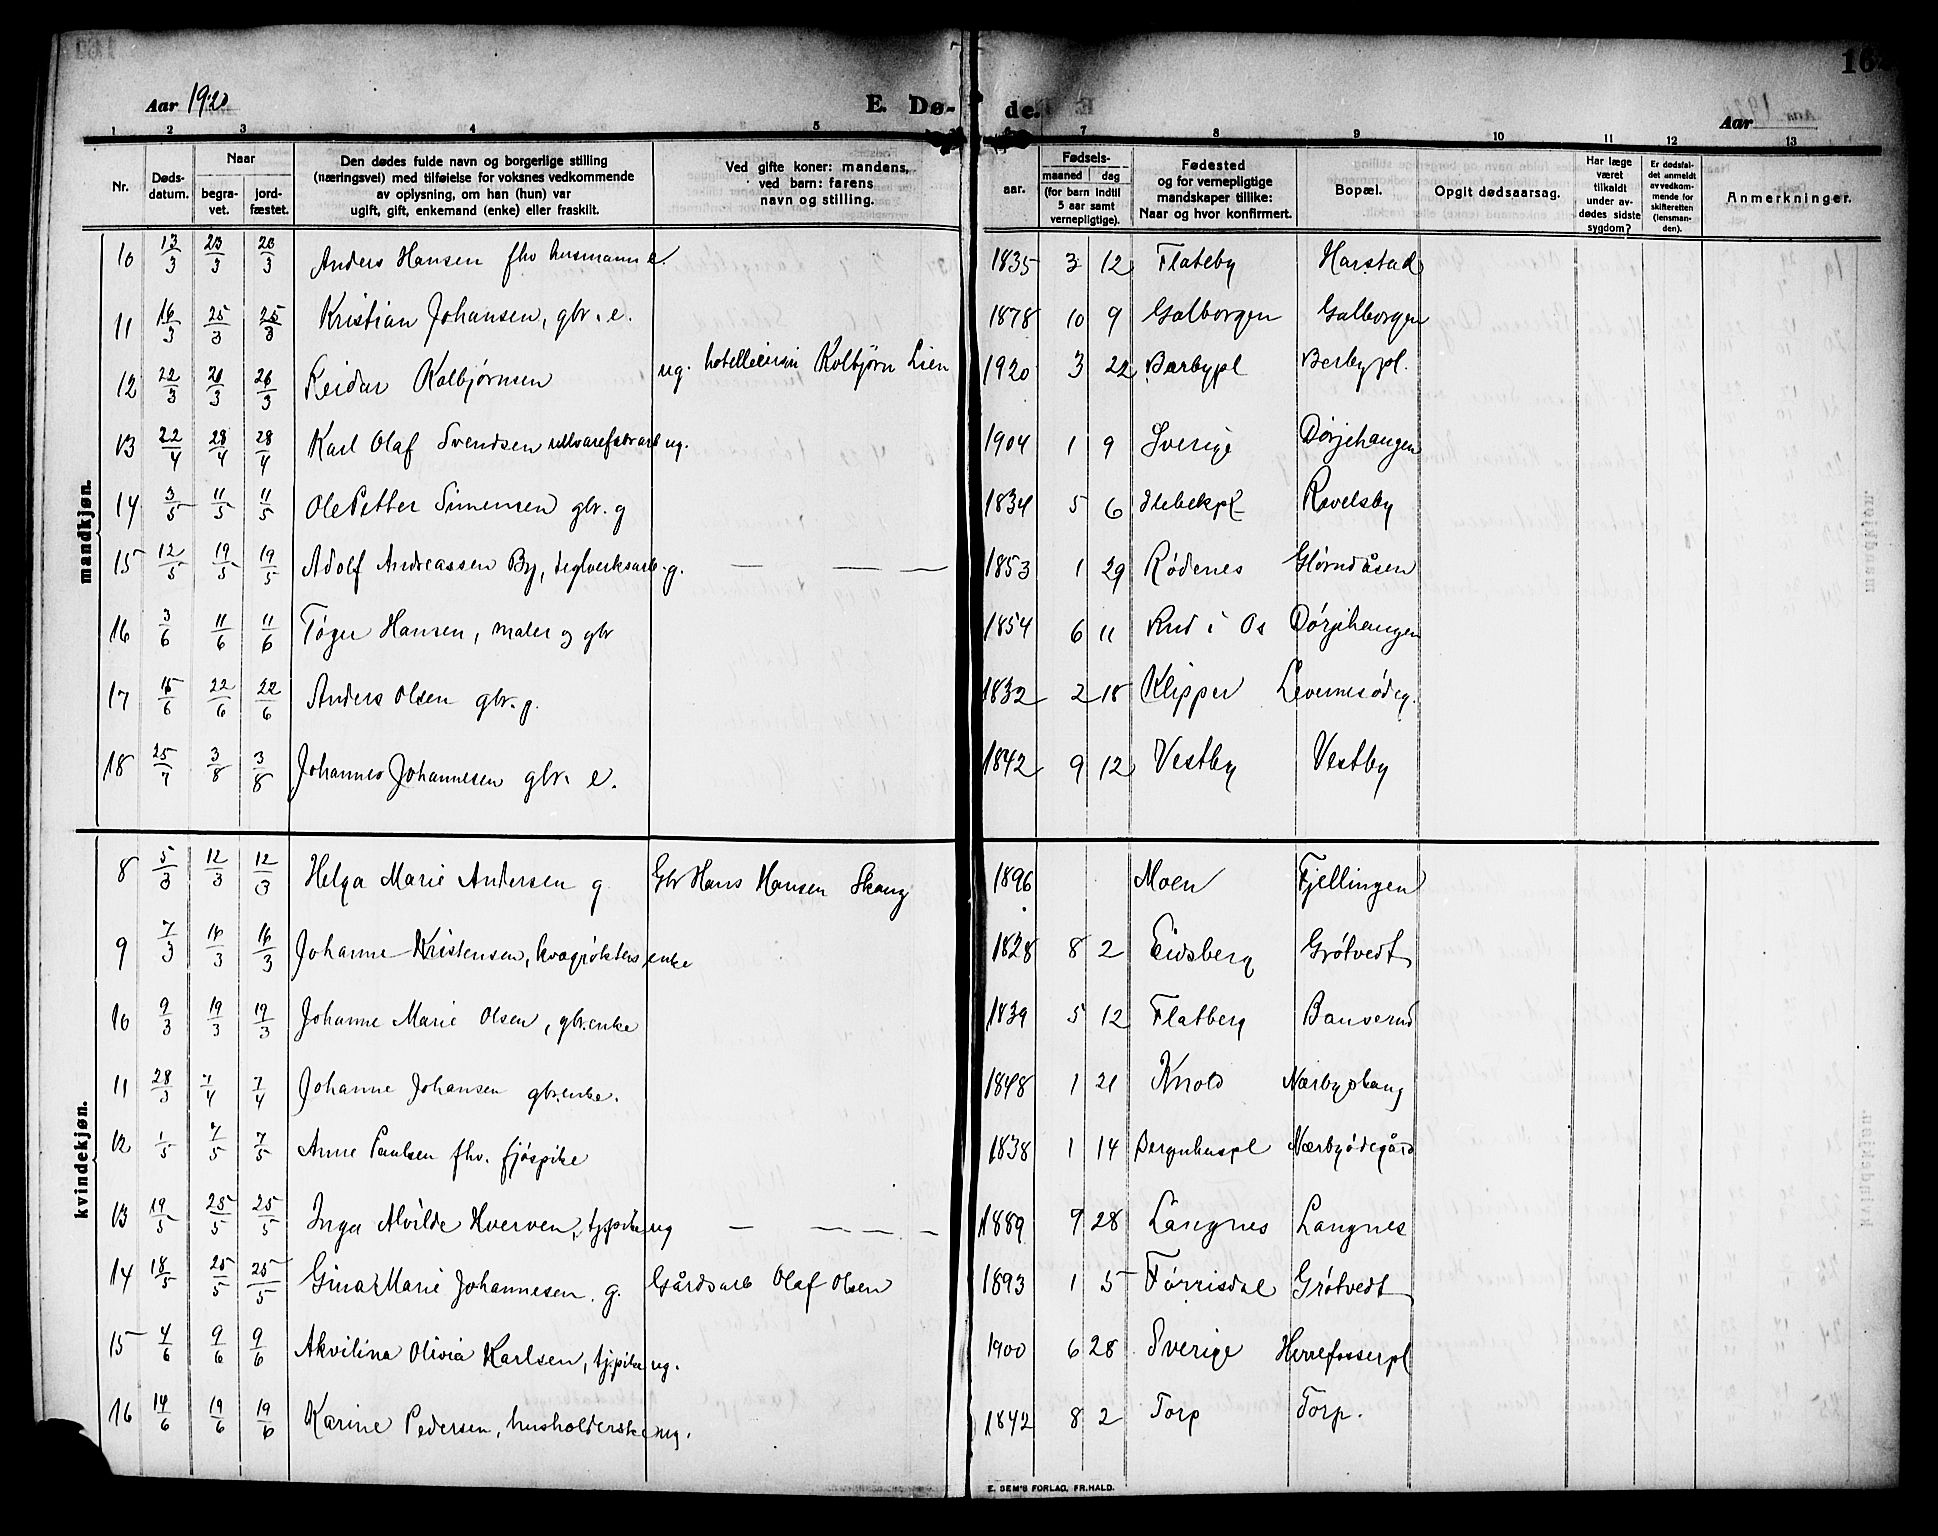 Aar 1920
E. Døde.
Aar
1 2 3 4 5 7 8 9 10 11 12 13
Nr.
Døds-datum.
Naar
begra-vet.
jord-fæstet.
Den dødes fulde navn og borgerlige stilling (næringsvei) med tilføielse for voksnes vedkommende av oplysning, om han (hun) var ugift, gift, enkemand (enke) eller fraskilt.
Ved gifte koner: mandens, ved barn: farens navn og stilling.
Fødsels-
aar.
maaned
dag
(for barn indtil 5 aar samt vernepligtige).
Fødested og for vernepligtige mandskaper tillike: Naar og hvor konfirmert.
Bopæl.
Opgit dødsaarsag.
Har læge været tilkaldt under av-dødes sidste sygdom?
Er dødsfal-det anmeldt av vedkom-mende for skifteretten (lensman-den).
Anmerkninger.
mandkjøn.
10 13/3 23/3 23/3 Anders Hansen fhv husmann e. 1835 3 12 Flateby Harstad
11 16/3 25/3 25/3 Kristian Johansen, gbr. e. 1878 10 9 Galborgen Galborgen
12 22/3 26/3 26/3 Reidar Kolbjørnsen ug. Kolbjørn Lien 1920 3 22 Barbypl Berbypl.
13 22/4 28/4 28/4 Karl Olaf Svendsen ullvarefabrarb ug. 1904 1 9 Sverige Dørjehaugen
14 3/5 11/5 11/5 Ole Petter Simensen gbr. g 1834 5 6 Revelsby
15 12/5 19/5 19/5 Adolf Andreassen By, teglverksarb. g. — — — 1853 1 29 Rødenes Glørndåsen
16 3/6 11/6 11/6 Tøger Hansen, maler og gbr 1854 6 11 Rud i Os Dørjehaugen
17 15/6 22/6 22/6 Anders Olsen gbr. g. 1832 2 18 Klipper
18 25/7 3/8 3/8 Johannes Johannesen gbr. e. 1842 9 12 Vestby Vestby
kvindekjøn.
8 5/3 12/3 12/3 Helga Marie Andersen g. Gbr Hans Hansen Skaug 1896 Moen Fjellingen
9 7/3 16/3 16/3 Johanne Kristensen, enke 1828 8 2 Eidsberg Grøtvedt
10 9/3 19/3 19/3 Johanne Marie Olsen, gbr.enke 1839 5 12 Flatberg Banserud
11 28/3 7/4 7/4 Johanne Johansen gbr.enke. 1848 1 21 Knold Nærbyshaug
12 1/5 7/5 7/5 Anne Paulsen fhv. fjøspike 1838 1 14 Nærbyødegård
13 19/5 25/5 25/5 Inga Alvilde Hverven, tj.pike ug — — — — 1889 9 28 Langnes Langnes
14 18/5 25/5 25/5 Gina Marie Johannesen. g. Gårdsarb Olaf Olsen 1893 1 5 Tørrisdal Grøtvedt
15 4/6 9/6 9/6 Akvilina Olivia Karlsen, tj.pike ug. 1900 6 28 Sverige
16 14/6 19/6 19/6 Karine Pedersen, husholderske ug. 1842 8 2 Torp Torp.
E. SEM'S FORLAG, FR.HALD.